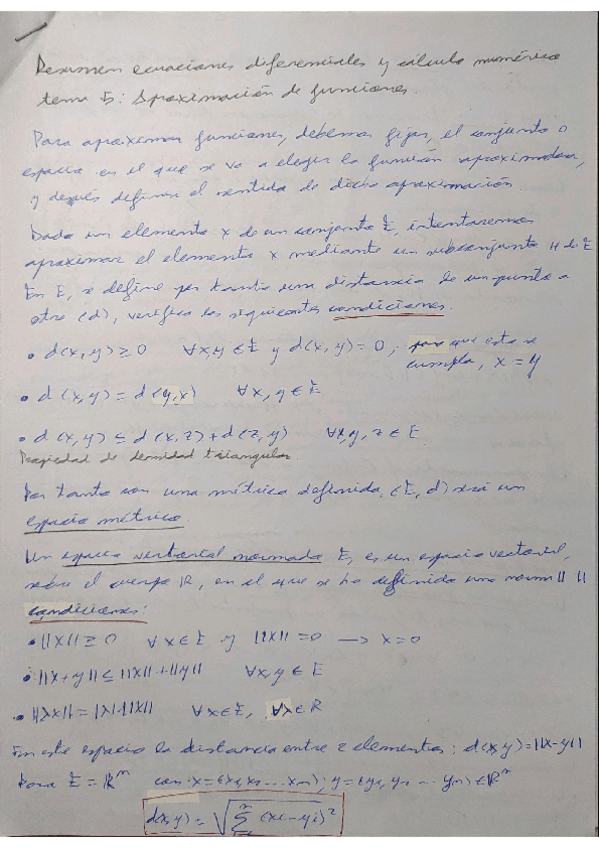 Resumen ecuaciones diferenciales y cálculo numérico
tema 5: Aproximación de funciones.
Para aproximar funciones, debemos fijar, el conjunto o
espacio en el que se va a elegir la función aproximadora,
y después definir el sentido de dicha aproximación.
Dado un elemento x de un conjunto E, intentaremos
aproximar el elemento x mediante un subconjunto H de E
En E, se define por tanto una distancia de un punto a
otro (d), verifica las siguientes condiciones.
• d(x,y) ≥ 0 ∀x,y ∈ E y d(x,y) = 0, para que esta se
cumpla, x = y
• d(x,y) = d(y,x) ∀x,y ∈ E
• d(x,y) ≤ d(x,z) + d(z,y) ∀x,y,z ∈ E
Propiedad de densidad triangular
Por tanto con una métrica definida, (E, d) será un
espacio métrico.
Un espacio vectorial normado E, es un espacio vectorial,
sobre el cuerpo R, en el que se ha definido una norma || ||
condiciones:
• ||x|| ≥ 0 ∀x ∈ E y ||x|| = 0 → x = 0
• ||x + y|| ≤ ||x|| + ||y|| ∀x,y ∈ E
• ||λx|| = |λ|·||x|| ∀x ∈ E, ∀λ ∈ R
En este espacio la distancia entre 2 elementos: d(x,y) = ||x-y||
Para E = Rⁿ con x = (x₁, x₂ ... xₙ); y = (y₁, y₂ ... yₙ) ∈ Rⁿ
d(x,y) = √ Σⁿ (xi - yi)²